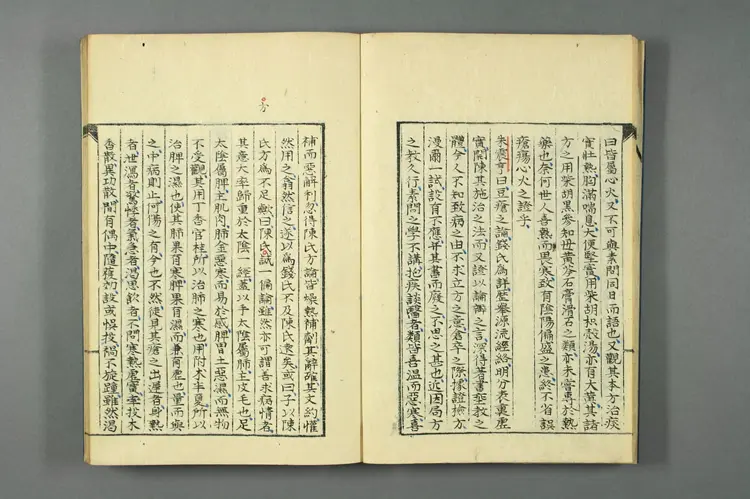 曰皆屬心火又不可與素問同日而語也又觀其本方治痰
實壯熱胸滿喘息大便堅實用柴胡枳殼湯亦有大黃其諸
方之用柴胡黑參知母黃芩石膏滑石之類亦未嘗專於熱
藥也奈何世人喜熱而畏寒致有陰陽偏盛之患終不省誤
瘡瘍心火之證乎
朱震亨曰痘瘡之論錢氏為詳歷舉源流經絡明分表裏虛
實開陳其施治之法而又證以論辯之言深得著書垂教之
體今人不知致病之由不求立方之意倉卒之際據證檢方
漫爾一試設有不應并其書而廢之不思之甚也近因局方
之教久行素問之學不講抱疾談醫者類皆喜溫而惡寒喜
補而惡解利忽得陳氏方論皆燥熱補劑其辭確其文約懽
然用之翕然信之遂以為錢氏不及陳氏遠矣或曰子以陳
氏方為不足歟曰陳氏誠一偏論雖然亦可謂善求病情者
其意大率歸重於太陰一經蓋以手太陰屬肺主皮毛也足
太陰屬脾主肌肉肺金惡寒而易於感脾胃土惡濕而無物
不受觀其用丁香官桂所以治肺之寒也用附木半夏所以
治脾之濕也使其肺果有寒脾果有濕而兼有虛也量而與
之中病則止何傷之有今也不然徒見其瘡之出遲者身熱
者泄瀉者驚悸者氣急者渴思飲者不問寒熱虛實率投木
香散異功散間有偶中隨手獲効設或誤投禍不旋踵雖然渴